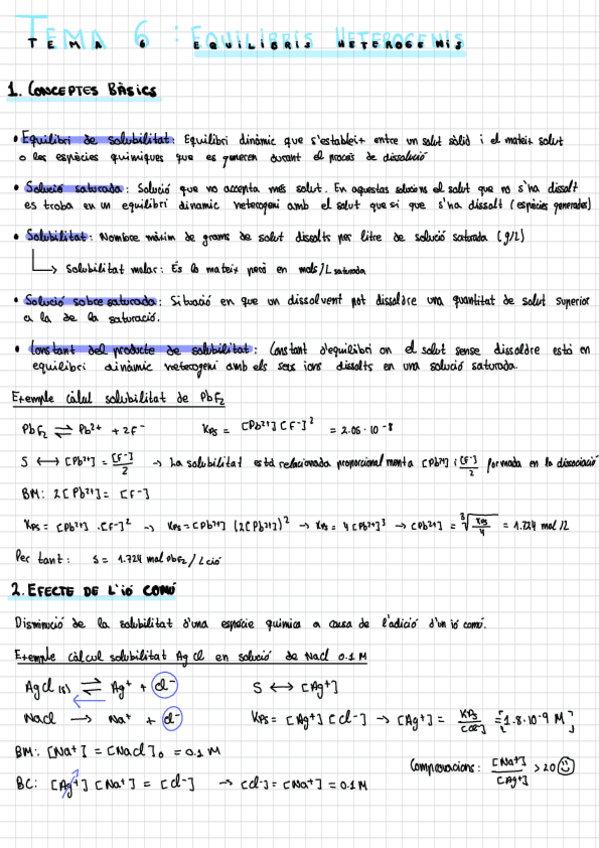 TEMA 6 : EQUILIBRIS HETEROGENIS
TEMA 6 EQUILIBRIS HETEROGENIS
1. CONCEPTES BÀSICS
• Equilibri de solubilitat: Equilibri dinàmic que s'estableix entre un solut sòlid i el mateix solut
o les espècies químiques que es generen durant el procés de dissolució
• Solució saturada: Solució que no accepta més solut. En aquestes solucions el solut que no s'ha dissolt
es troba en un equilibri dinamic heterogeni amb el solut que si que s'ha dissolt (espècies generades)
• Solubilitat: Nombre màxim de grams de solut dissolts per litre de solució saturada (g/L)
Solubilitat molar: És lo mateix però en mols/L saturada
• Solució sobresaturada: Situació en que un dissolvent pot dissoldre una quantitat de solut superior
a la de la saturació.
• Constant del producte de solubilitat: Constant d'equilibri on el solut sense dissoldre està en
equilibri dinàmic heterogeni amb els seus ions dissolts en una solució saturada
Exemple càlcul solubilitat de PbF₂
PbF₂ ⇌ Pb²⁺ + 2F⁻ Kps = [Pb²⁺][F⁻]² = 2.05·10⁻⁸
S ↔ [Pb²⁺] = [F⁻]/2 → La solubilitat està relacionada proporcionalment a [Pb²⁺] i [F⁻]/2 formada en la dissociació
BM: 2[Pb²⁺] = [F⁻]
Kps = [Pb²⁺]·[F⁻]² → Kps = [Pb²⁺](2[Pb²⁺])² → Kps = 4[Pb²⁺]³ → [Pb²⁺] = ³√(Kps/4) = 1.724 mol/L
Per tant: S = 1.724 mol PbF₂/L ció
2. EFECTE DE L'IÓ COMÚ
Disminució de la solubilitat d'una espècie química a causa de l'adició d'un ió comú.
Exemple càlcul solubilitat AgCl en solució de NaCl 0.1 M
AgCl (s) ⇌ Ag⁺ + Cl⁻ S ↔ [Ag⁺]
NaCl → Na⁺ + Cl⁻ Kps = [Ag⁺][Cl⁻] → [Ag⁺] = Kps/[Cl⁻] = [1.8·10⁻⁹ M]
BM: [Na⁺] = [NaCl]₀ = 0.1 M
Comprovacions: [Na⁺]/[Ag⁺] > 20
BC: [Ag⁺][Na⁺] = [Cl⁻] → [Cl⁻] = [Na⁺] = 0.1 M